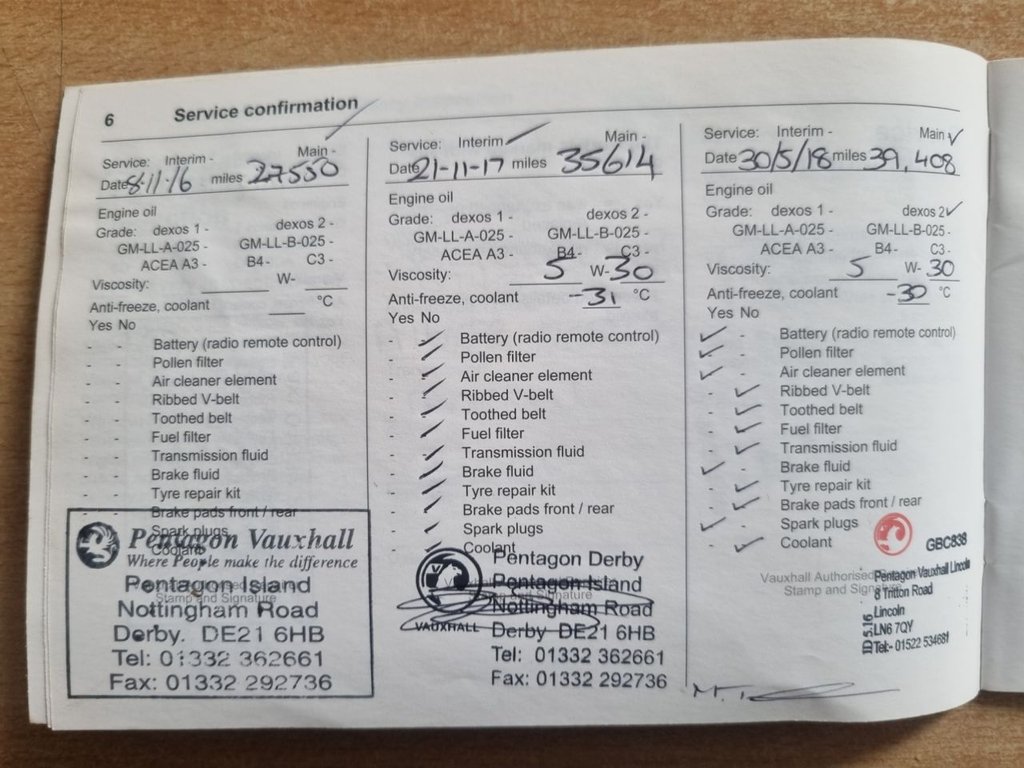 6 Service confirmation
Service: Interim - Main -
Date 8-11-16 miles 27550
Engine oil
Grade: dexos 1 - dexos 2 -
GM-LL-A-025 - GM-LL-B-025 -
ACEA A3 - B4 - C3 -
Viscosity: W-
Anti-freeze, coolant °C
Yes No
- - Battery (radio remote control)
- - Pollen filter
- - Air cleaner element
- - Ribbed V-belt
- - Toothed belt
- - Fuel filter
- - Transmission fluid
- - Brake fluid
- - Tyre repair kit
- - Brake pads front / rear
Spark plugs
Coolant
Stamp and Signature
Pentagon Vauxhall
Where People make the difference
Pentagon Island
Nottingham Road
Derby. DE21 6HB
Tel: 01332 362661
Fax: 01332 292736
Service: Interim ✓ Main -
Date 21-11-17 miles 35614
Engine oil
Grade: dexos 1 - dexos 2 -
GM-LL-A-025 - GM-LL-B-025 -
ACEA A3 - B4 - C3 -
Viscosity: 5 W-30
Anti-freeze, coolant -31 °C
Yes No
- ✓ Battery (radio remote control)
- ✓ Pollen filter
- ✓ Air cleaner element
- ✓ Ribbed V-belt
- ✓ Toothed belt
- ✓ Fuel filter
- ✓ Transmission fluid
- ✓ Brake fluid
- ✓ Tyre repair kit
- ✓ Brake pads front / rear
- ✓ Spark plugs
- ✓ Coolant
Pentagon Derby
Pentagon Island
Nottingham Road
VAUXHALL Derby DE21 6HB
Tel: 01332 362661
Fax: 01332 292736
Service: Interim - Main ✓
Date 30/5/18 miles 39,408
Engine oil
Grade: dexos 1 - dexos 2 ✓
GM-LL-A-025 - GM-LL-B-025 -
ACEA A3 - B4 - C3 -
Viscosity: 5 W- 30
Anti-freeze, coolant -30 °C
Yes No
✓ - Battery (radio remote control)
✓ - Pollen filter
✓ - Air cleaner element
- ✓ Ribbed V-belt
- ✓ Toothed belt
- ✓ Fuel filter
- ✓ Transmission fluid
✓ - Brake fluid
- ✓ Tyre repair kit
- ✓ Brake pads front / rear
✓ - Spark plugs
- ✓ Coolant
GBC838
Vauxhall Authorised
Stamp and Signature
Pentagon Vauxhall Lincoln
8 Tritton Road
Lincoln
LN6 7QY
Tel:- 01522 534681
ID 5.16